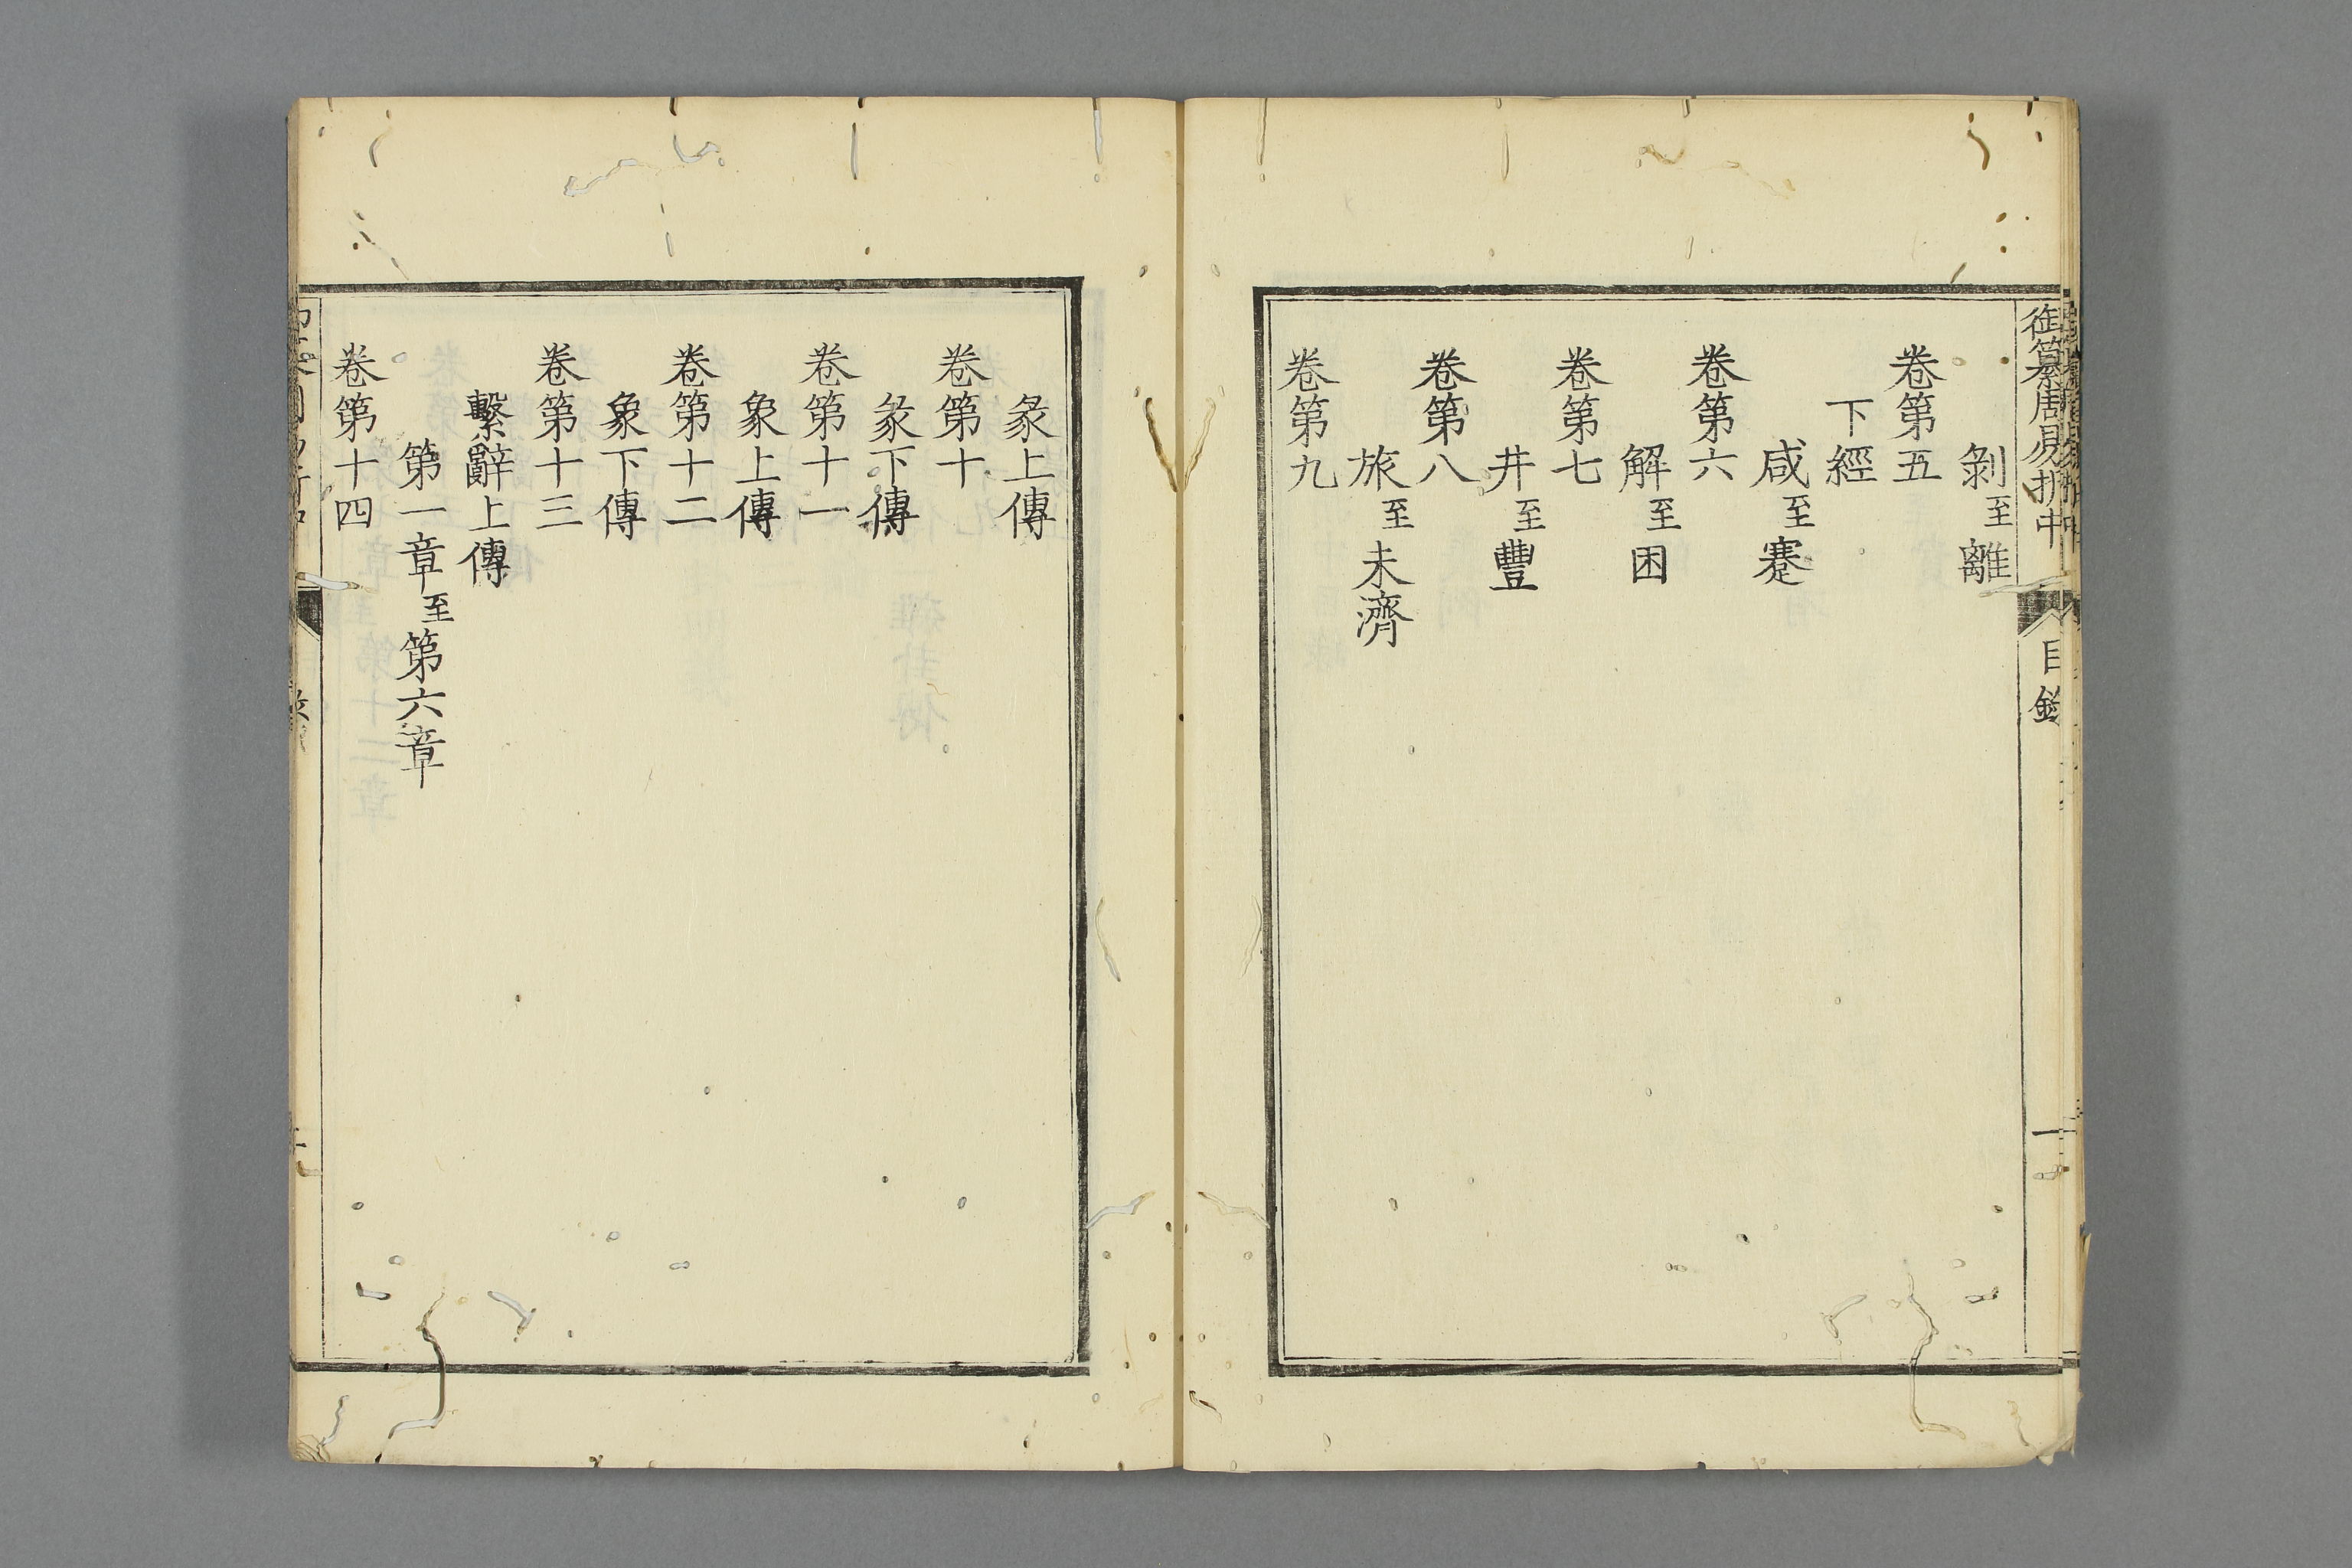 御纂周易折中
目錄
一
剝至離
卷第五
下經
咸至蹇
卷第六
解至困
卷第七
井至豐
卷第八
旅至未濟
卷第九
彖上傳
卷第十
彖下傳
卷第十一
象上傳
卷第十二
象下傳
卷第十三
繫辭上傳
第一章至第六章
卷第十四